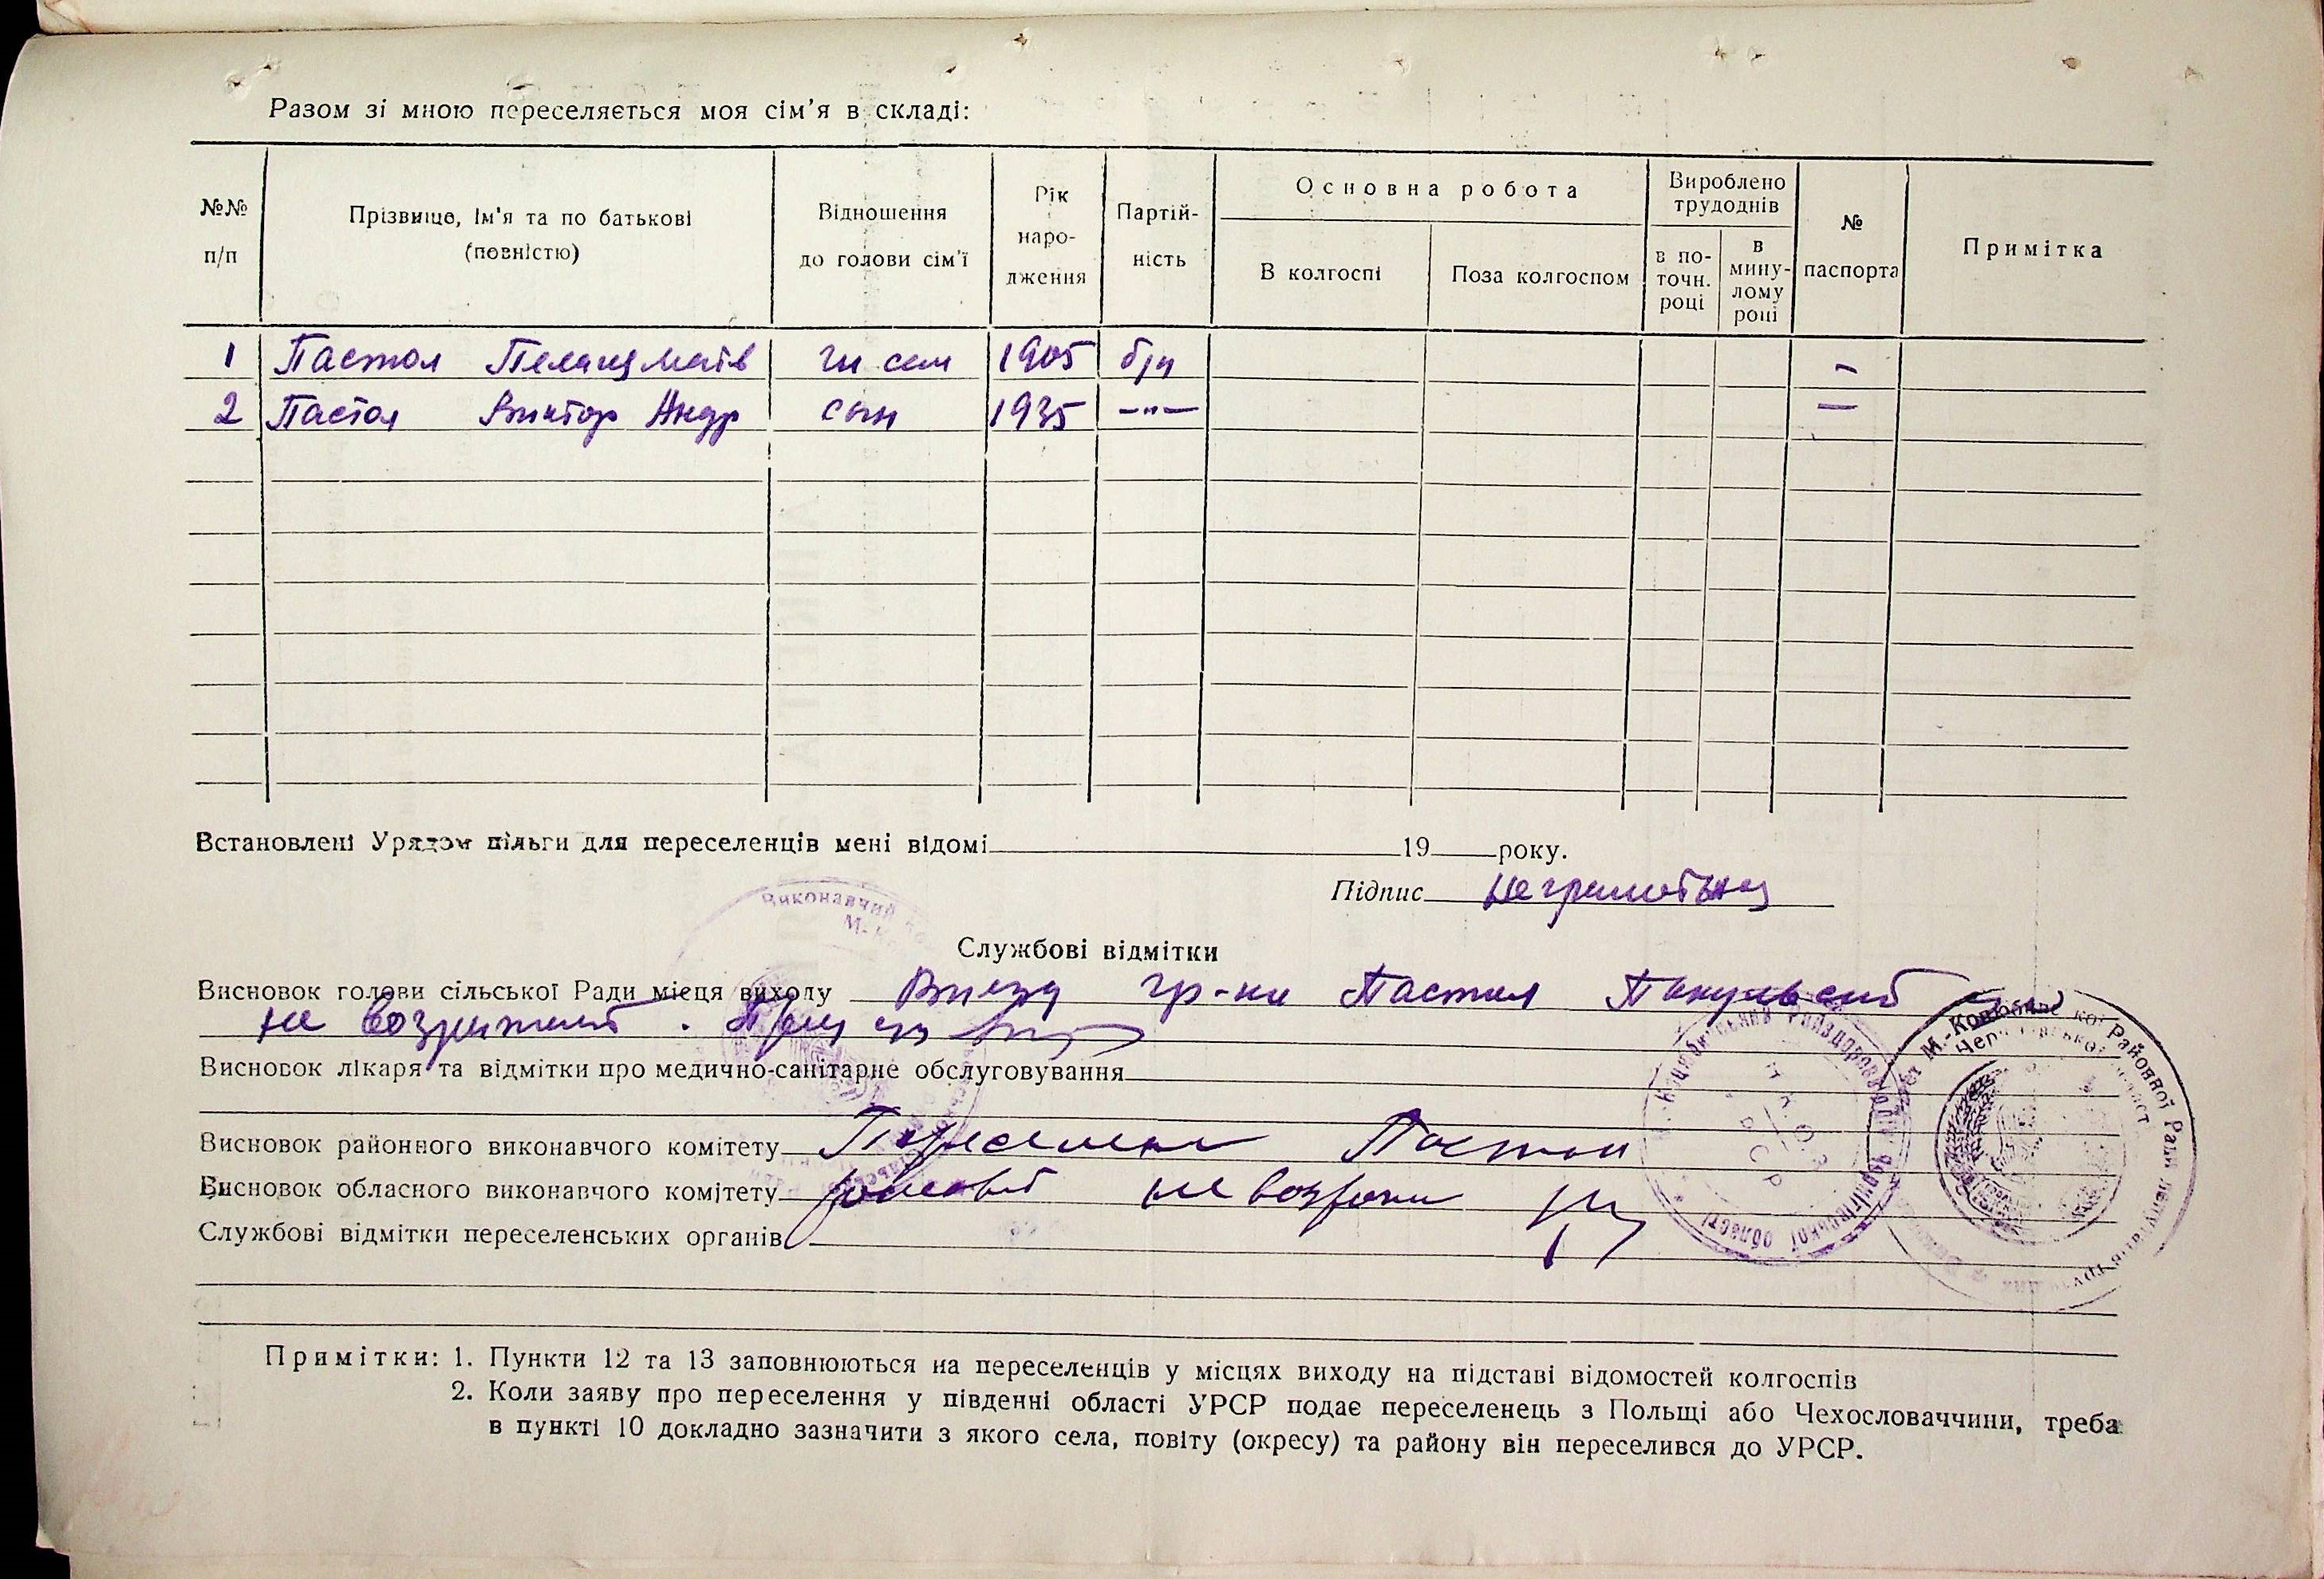 Разом зі мною переселяється моя сім'я в складі:
№№ п/п
Прізвище, ім'я та по батькові (повністю)
Відношення до голови сім'ї
Рік народження
Партійність
Основна робота
В колгоспі
Поза колгоспом
Вироблено трудоднів
в поточн. році
в минулому році
№ паспорта
Примітка
1 Пастол Пелагея 1905 б/п —
2 Пастол Виктор Андр сын 1935 —"— —
Встановлені Урядом пільги для переселенців мені відомі 19 року.
Підпис неграмотная
Службові відмітки
Висновок голови сільської Ради місця виходу Выезд гр-ки Пастол
не возражает.
Висновок лікаря та відмітки про медично-санітарне обслуговування
Висновок районного виконавчого комітету Пастол
Висновок обласного виконавчого комітету не возраж
Службові відмітки переселенських органів
Примітки: 1. Пункти 12 та 13 заповнюються на переселенців у місцях виходу на підставі відомостей колгоспів
2. Коли заяву про переселення у південні області УРСР подає переселенець з Польщі або Чехословаччини, треба
в пункті 10 докладно зазначити з якого села, повіту (окресу) та району він переселився до УРСР.
Виконавчий
Районної Ради
області